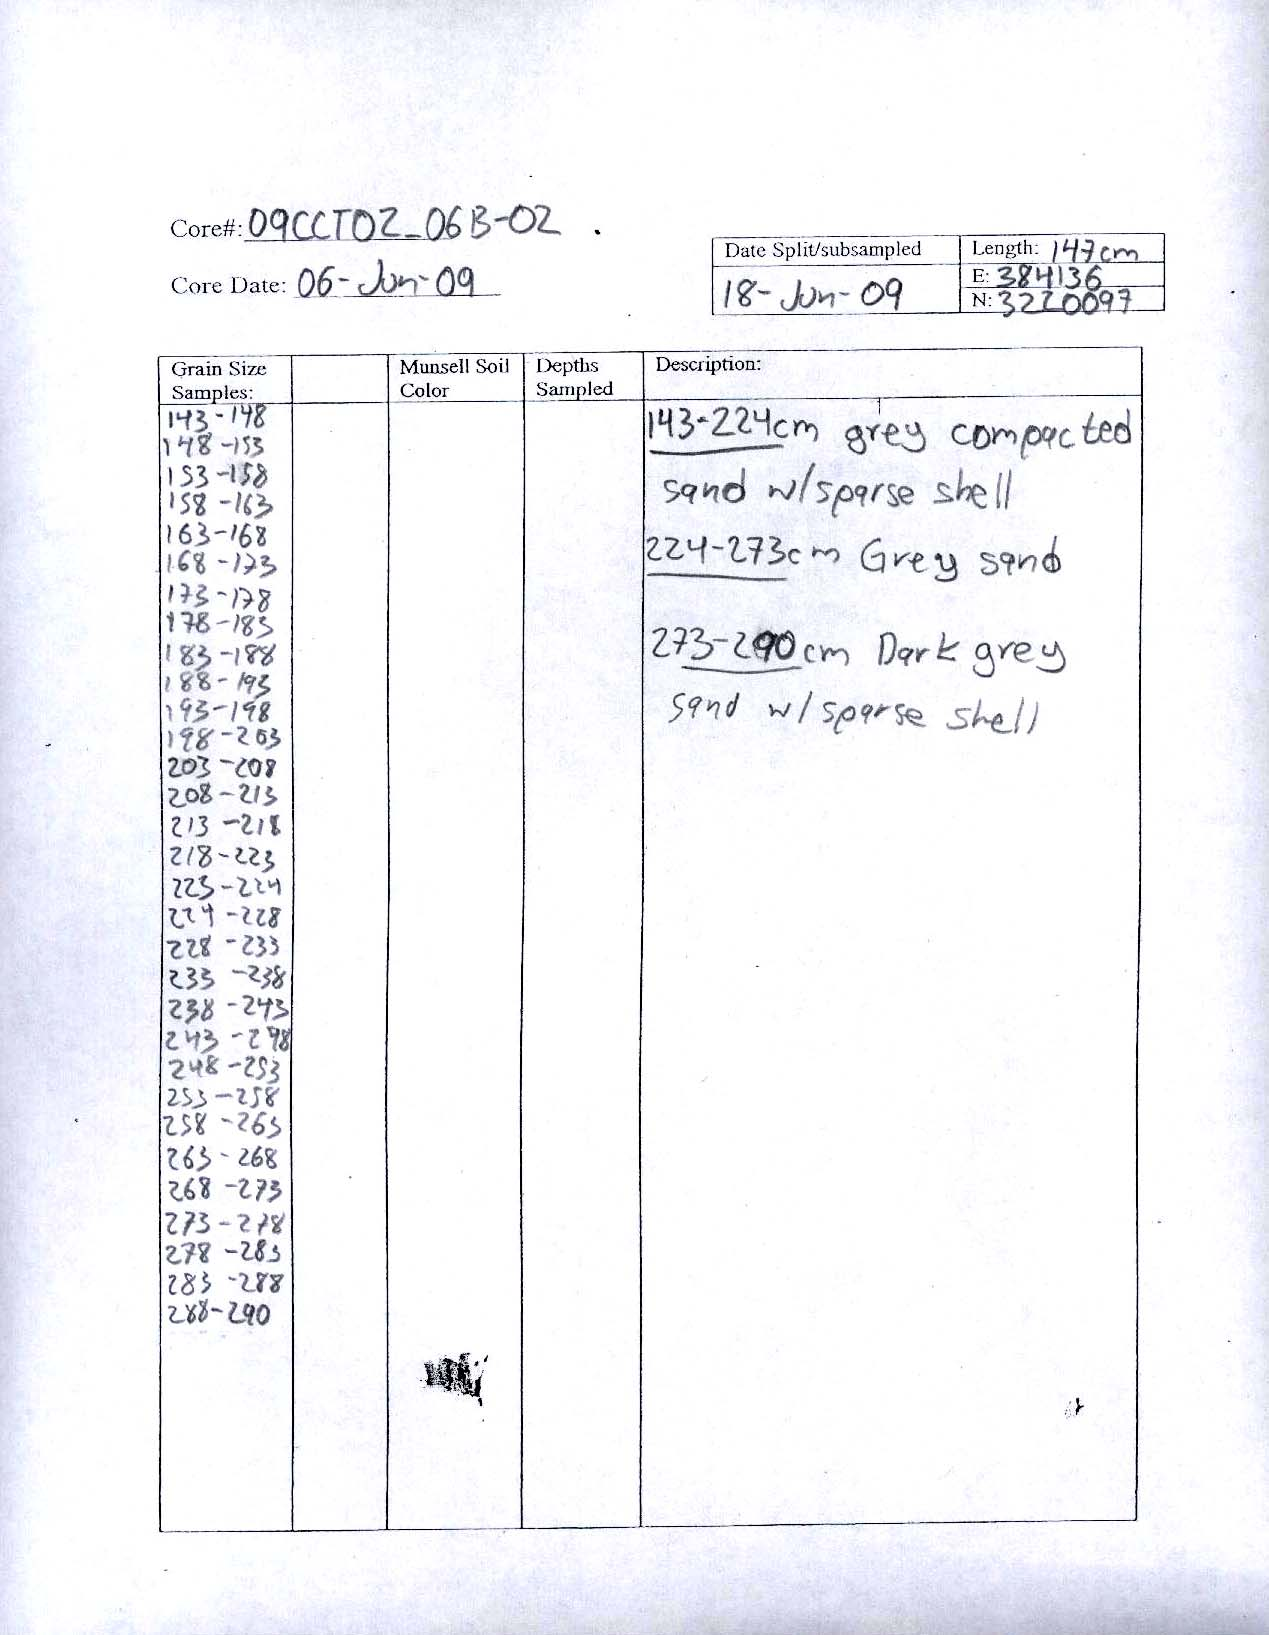 Core#: 09CCT02_06B-02
Date Split/subsampled
Length: 147cm
Core Date: 06-Jun-09
18-Jun-09
E: 384136
N: 3220097
Grain Size Samples:
Munsell Soil Color
Depths Sampled
Description:
143-148
148-153
153-158
158-163
163-168
168-173
173-178
178-183
183-188
188-193
193-198
198-203
203-208
208-213
213-218
218-223
223-224
224-228
228-233
233-238
238-243
243-248
248-253
253-258
258-263
263-268
268-273
273-278
278-283
283-288
288-290
143-224cm grey compacted
sand w/sparse shell
224-273cm Grey sand
273-290cm Dark grey
sand w/sparse shell